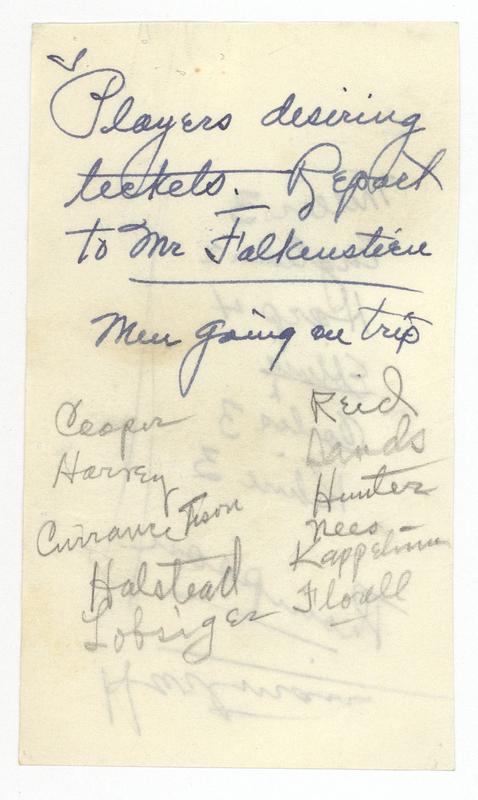 Players desiring
tickets. Report
to Mr Falkenstien
Men going on trip
Cooper
Harvey
Tison
Halstead
Lobsiger
Reid
Sands
Hunter
Nees
Kappelman
Floall